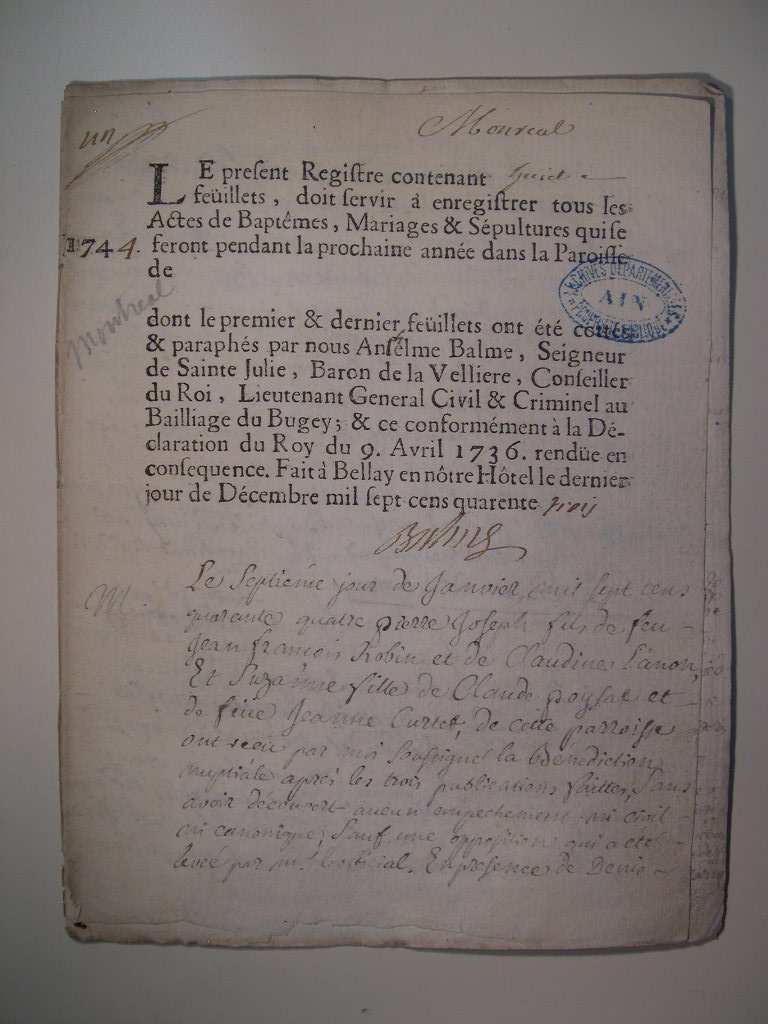 un
Monreal
LE present Registre contenant huict
feüillets, doit servir à enregistrer tous les
Actes de Baptêmes, Mariages & Sépultures qui se
1744. feront pendant la prochaine année dans la Paroisse
de
Montreal
ARCHIVES DÉPARTEMENTALES
AIN
dont le premier & dernier feüillets ont été cottés
& paraphés par nous Anselme Balme, Seigneur
de Sainte Julie, Baron de la Velliere, Conseiller
du Roi, Lieutenant General Civil & Criminel au
Bailliage du Bugey; & ce conformément à la Dé-
claration du Roy du 9. Avril 1736. rendüe en
consequence. Fait à Bellay en nôtre Hôtel le dernier
jour de Décembre mil sept cens quarente trois
Balme
M.
Le Septiéme jour de Janvier, mil sept cens
quarante quatre pierre Joseph fils de feu
Jean francois Robin et de Claudine
Et Suzanne fille de Claude poysat et
de feüe Jeanne Curtet, de cette parroisse
ont receu par moi soussigné la bénédiction
nuptiale aprés les trois publications faittes, sans
avoir découvert aucun empechement ni civil
ni canonique; sauf une opposition qui a eté
levée par mr l'official. En présence de Denis